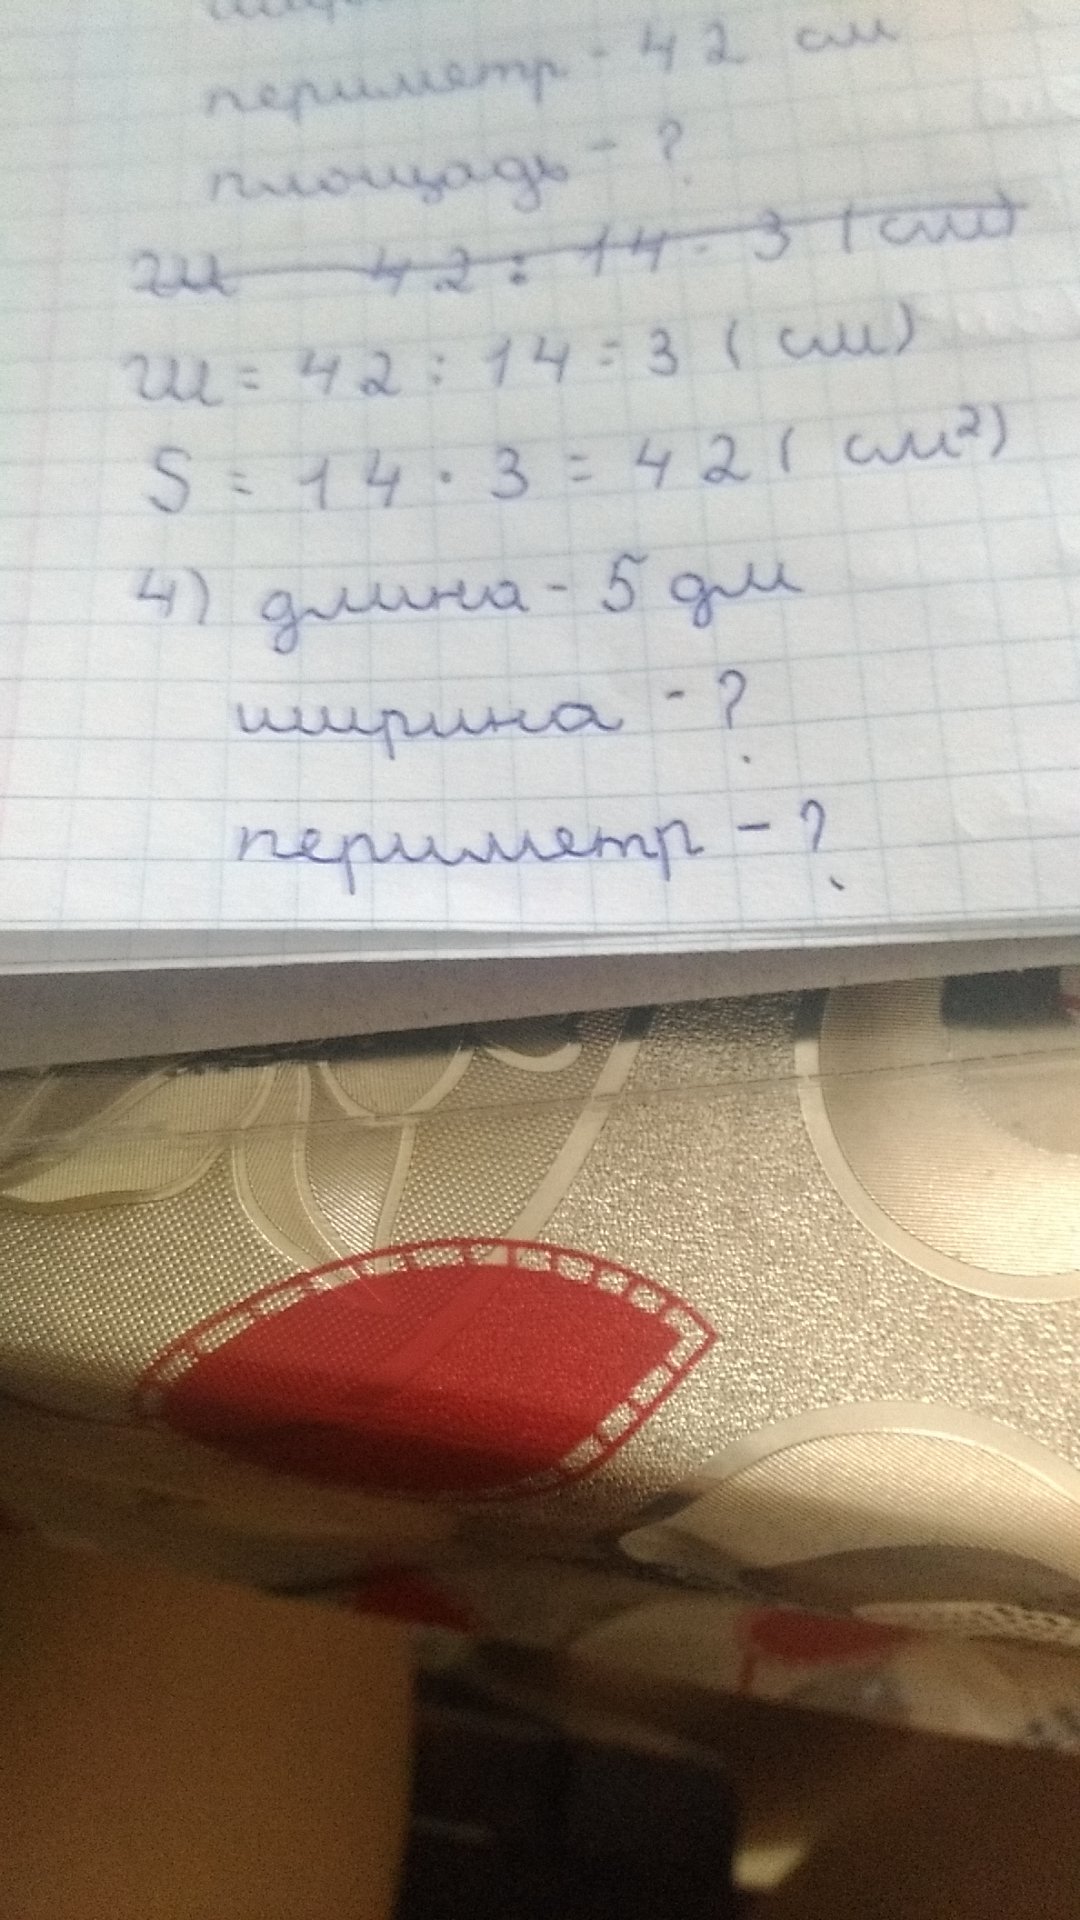 периметр - 42 см
площадь - ?
Ш 42 : 14 - 3 (см)
Ш = 42 : 14 = 3 (см)
S = 14 · 3 = 42 (см²)
4) длина - 5 дм
ширина - ?
периметр - ?